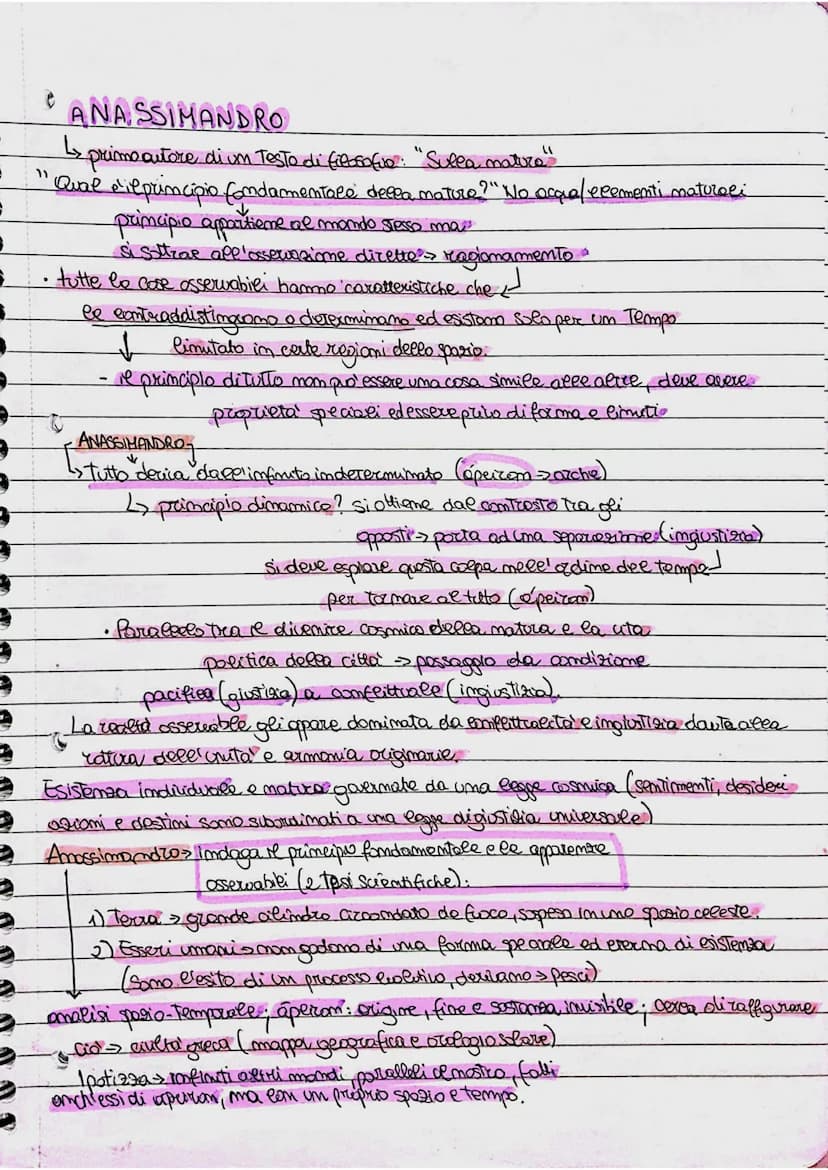 ANASSIMANDRO
↳ primo autore di un Testo di filosofia: "Sulla natura"
"Qual è il principio fondamentale della natura?" No acqua/elementi naturali
principio appartiene al mondo stesso ma
si sottrae all'osservazione diretta → ragionamento
· tutte le cose osservabili hanno caratteristiche che
le contraddistinguono o determinano ed esistono solo per un Tempo
↓ limitato in certe regioni dello spazio.
- il principio di tutto non può essere una cosa simile alle altre, deve avere
proprietà speciali ed essere privo di forma e limiti
ANASSIMANDRO
↳ Tutto deriva dall'infinito indeterminato (ápeiron → arché)
↳ principio dinamico? si ottiene dal contrasto tra gli
opposti → porta ad una separazione (ingiustizia)
si deve espiare questa colpa nell'ordine del tempo
per tornare al tutto (ápeiron)
· Parallelo tra il divenire cosmico della natura e la vita
politica della città → passaggio da condizione
pacifica (giustizia) a conflittuale (ingiustizia).
La realtà osservabile gli appare dominata da conflittualità e ingiustizia dovuta alla
rottura dell'unità e armonia originarie.
Esistenza individuale e natura governate da una legge cosmica (sentimenti, desideri
azioni e destini sono subordinati a una legge di giustizia universale)
Anassimandro → Indaga il principio fondamentale e le apparenze
osservabili (2 Tesi Scientifiche):
1) Terra → grande cilindro circondato da fuoco, sospeso in uno spazio celeste.
2) Esseri umani → non godono di una forma speciale ed eterna di esistenza
(sono l'esito di un processo evolutivo, deriviamo → pesci)
analisi spazio-Temporale; ápeiron: origine, fine e sostanza invisibile; cerca di raffigurare
ciò → civiltà greca (mappa geografica e orologio solare)
Ipotizza → infiniti altri mondi, paralleli al nostro, fatti
anch'essi di apeiron, ma con un proprio spazio e tempo.